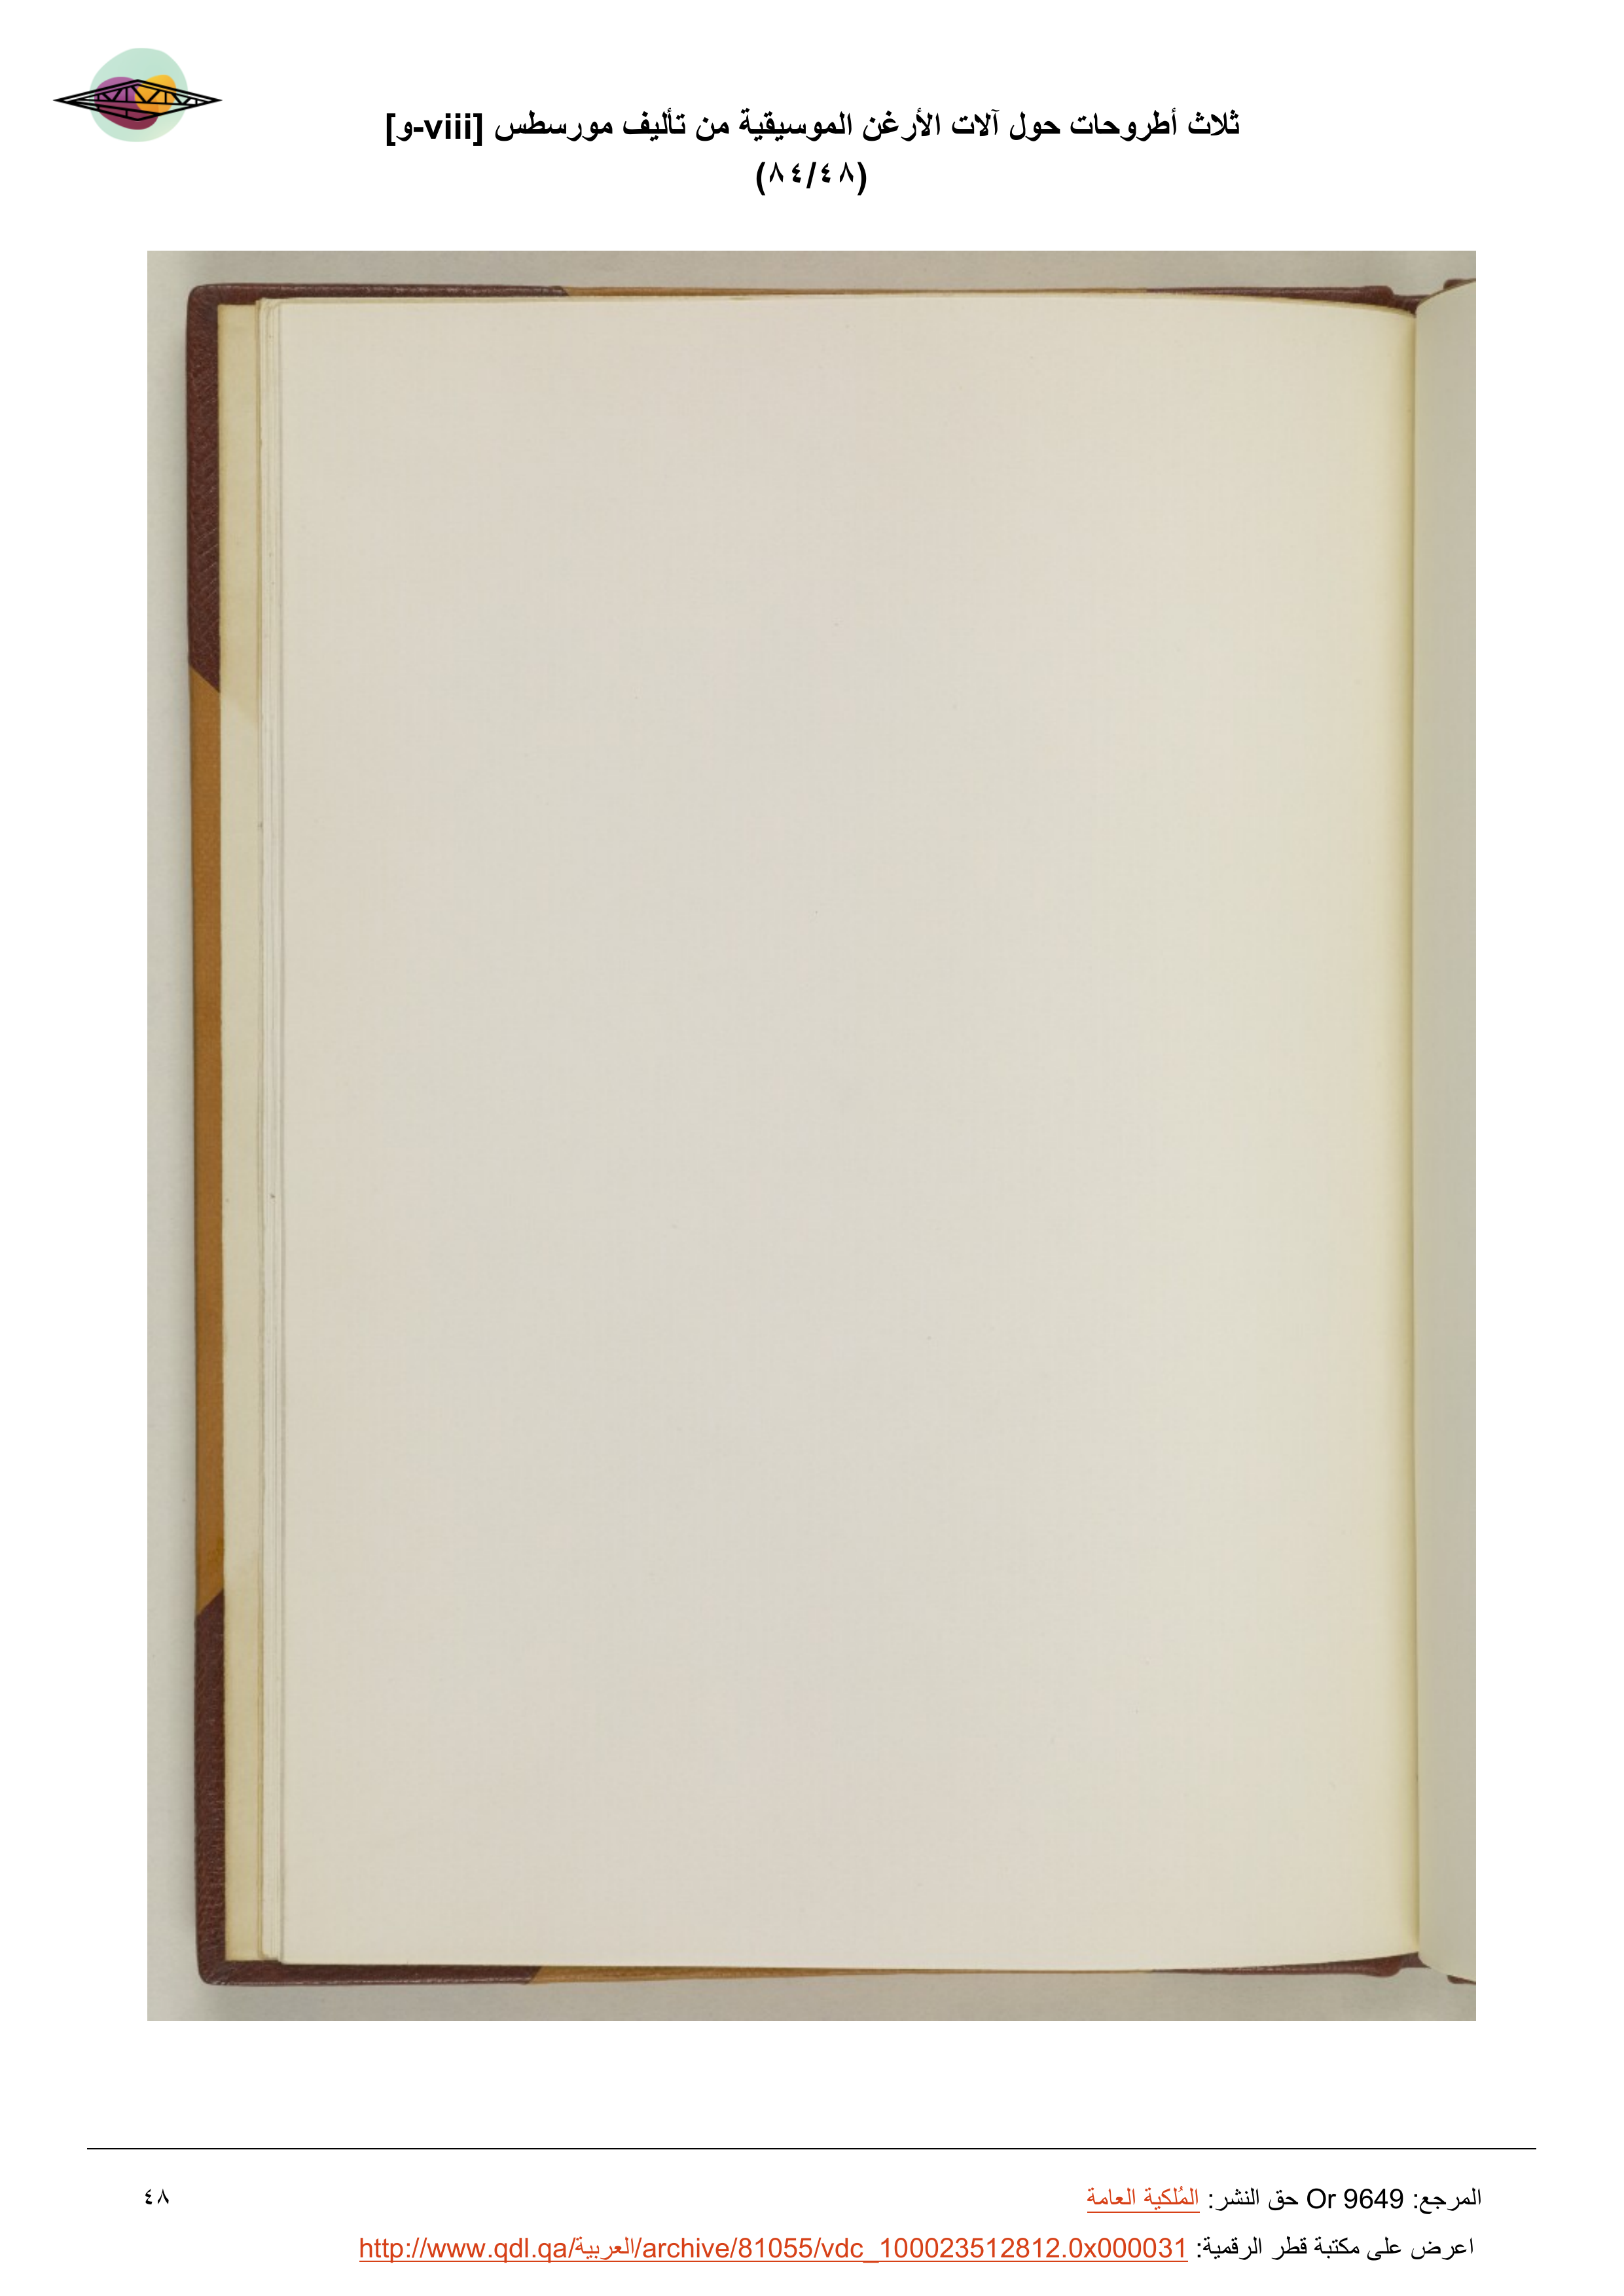 ثلاث أطروحات حول آلات الأرغن الموسيقية من تأليف مورسطس [viii-و]
(٨٤/٤٨)
المرجع: Or 9649 حق النشر: المُلكية العامة
٤٨
اعرض على مكتبة قطر الرقمية: http://www.qdl.qa/العربية/archive/81055/vdc_100023512812.0x000031